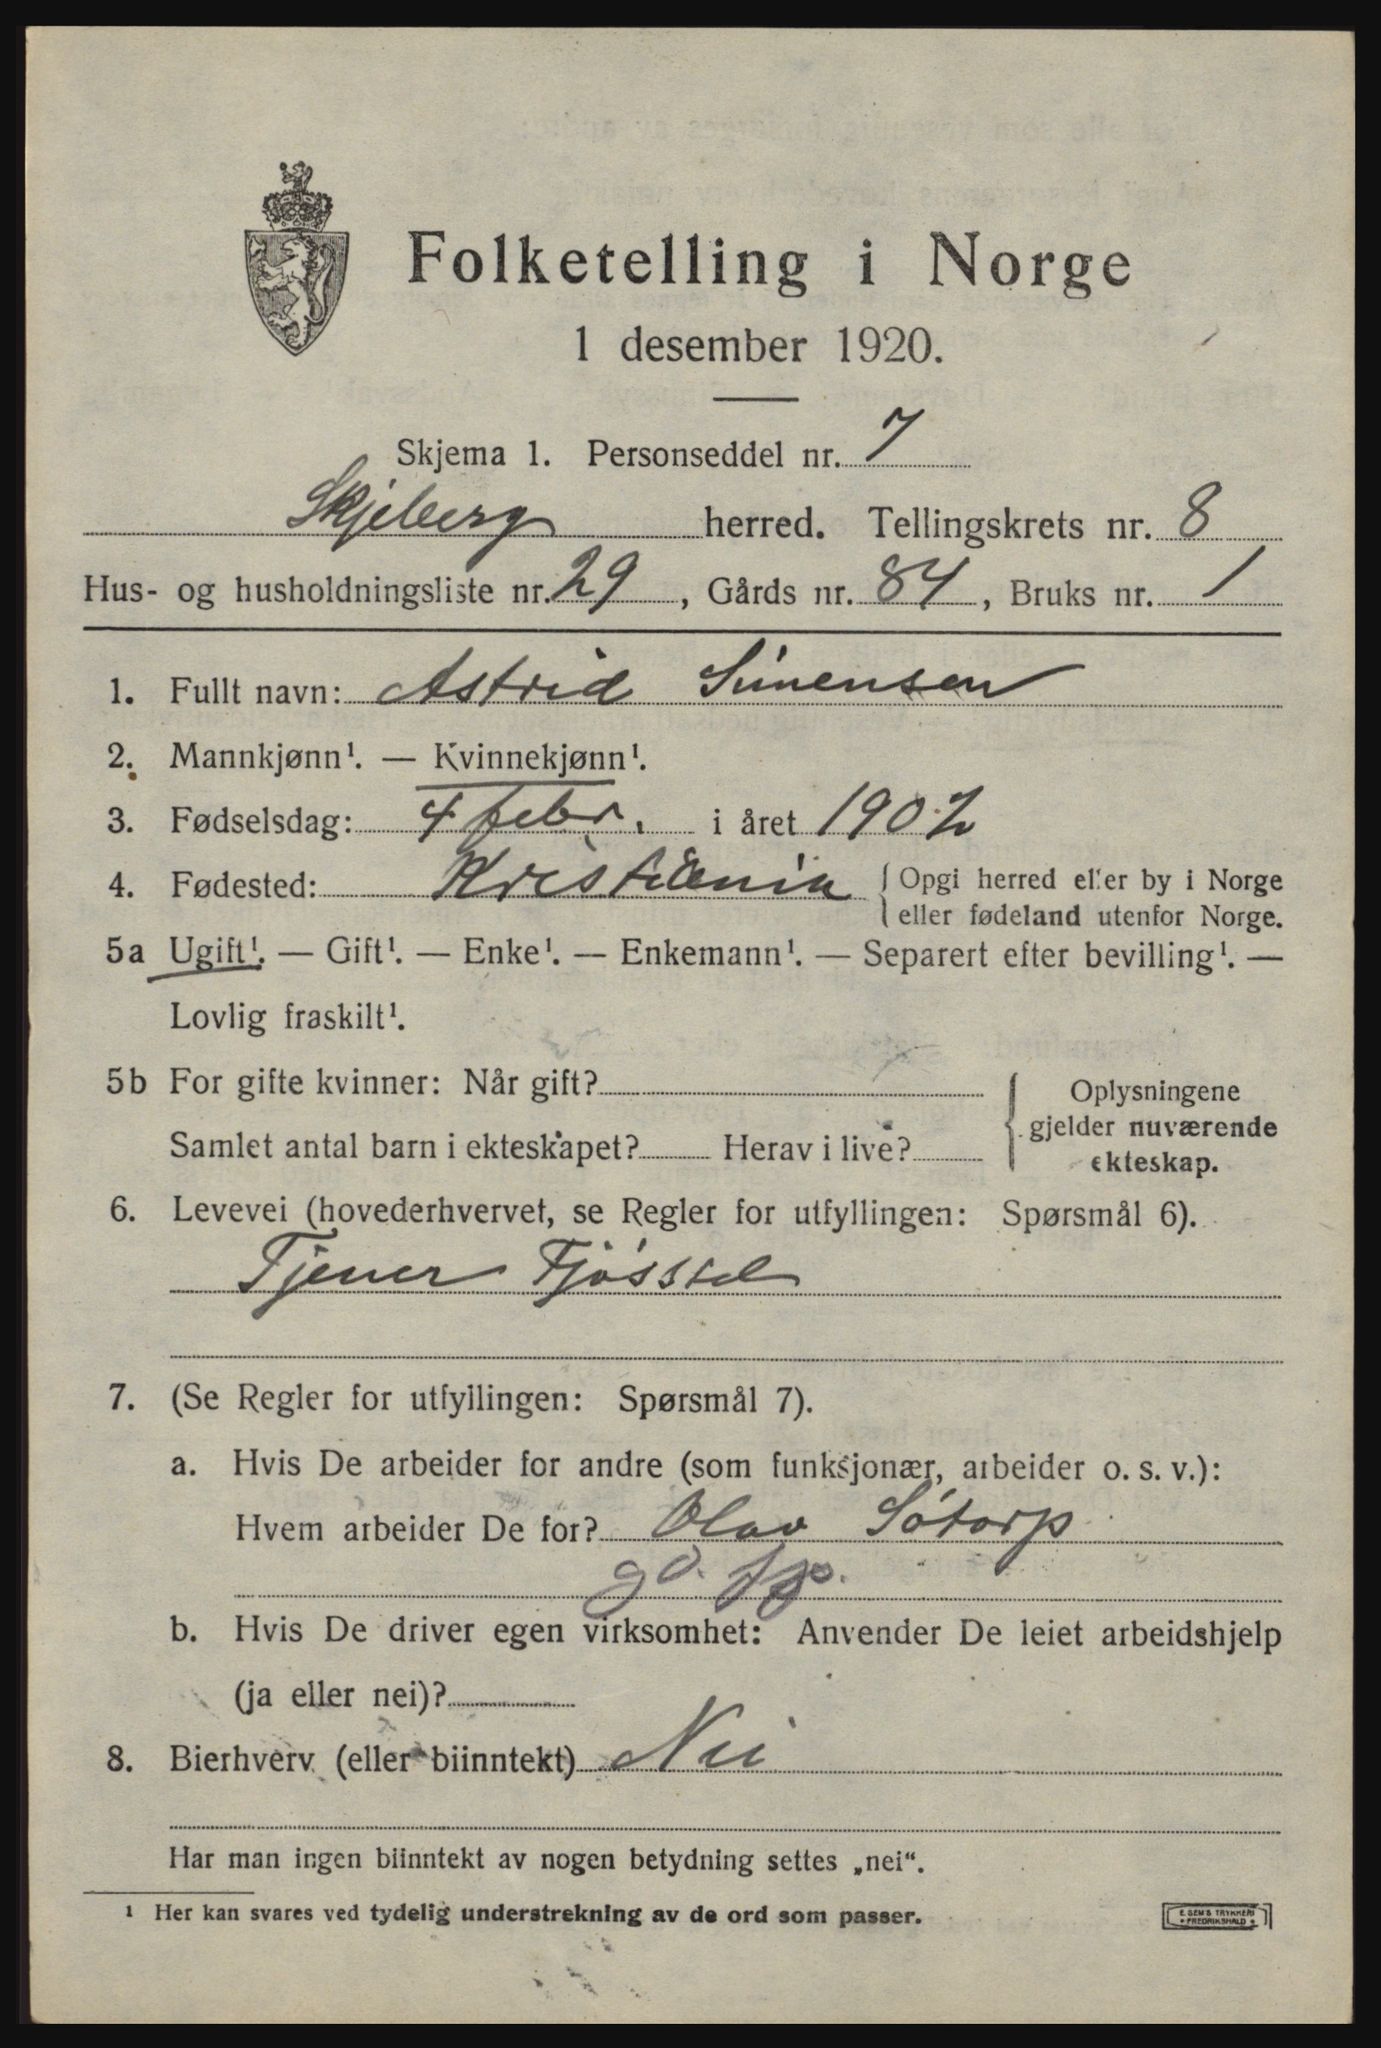 Folketelling i Norge
1 desember 1920.
Skjema 1. Personseddel nr. 7
Skjeberg herred. Tellingskrets nr. 8
Hus- og husholdningsliste nr. 29, Gårds nr. 84, Bruks nr. 1
1. Fullt navn: Astrid Simensen
2. Mannkjønn¹. — Kvinnekjønn¹.
3. Fødselsdag: 4 febr. i året 1902
4. Fødested: Kristiania { Opgi herred eller by i Norge
eller fødeland utenfor Norge.
5a Ugift¹. — Gift¹. — Enke¹. — Enkemann¹. — Separert efter bevilling¹. —
Lovlig fraskilt¹.
5b For gifte kvinner: Når gift? { Oplysningene
gjelder nuværende
ekteskap.
Samlet antal barn i ekteskapet? Herav i live?
6. Levevei (hovederhvervet, se Regler for utfyllingen: Spørsmål 6).
Tjener Fjósstel
7. (Se Regler for utfyllingen: Spørsmål 7).
a. Hvis De arbeider for andre (som funksjonær, arbeider o. s. v.):
Hvem arbeider De for? Olav Sótorp
gd.
b. Hvis De driver egen virksomhet: Anvender De leiet arbeidshjelp
(ja eller nei)?
8. Bierhverv (eller biinntekt) Nei
Har man ingen biinntekt av nogen betydning settes „nei“.
¹ Her kan svares ved tydelig understrekning av de ord som passer.
E. SEM'S TRYKKERI
• FREDRIKSHALD •